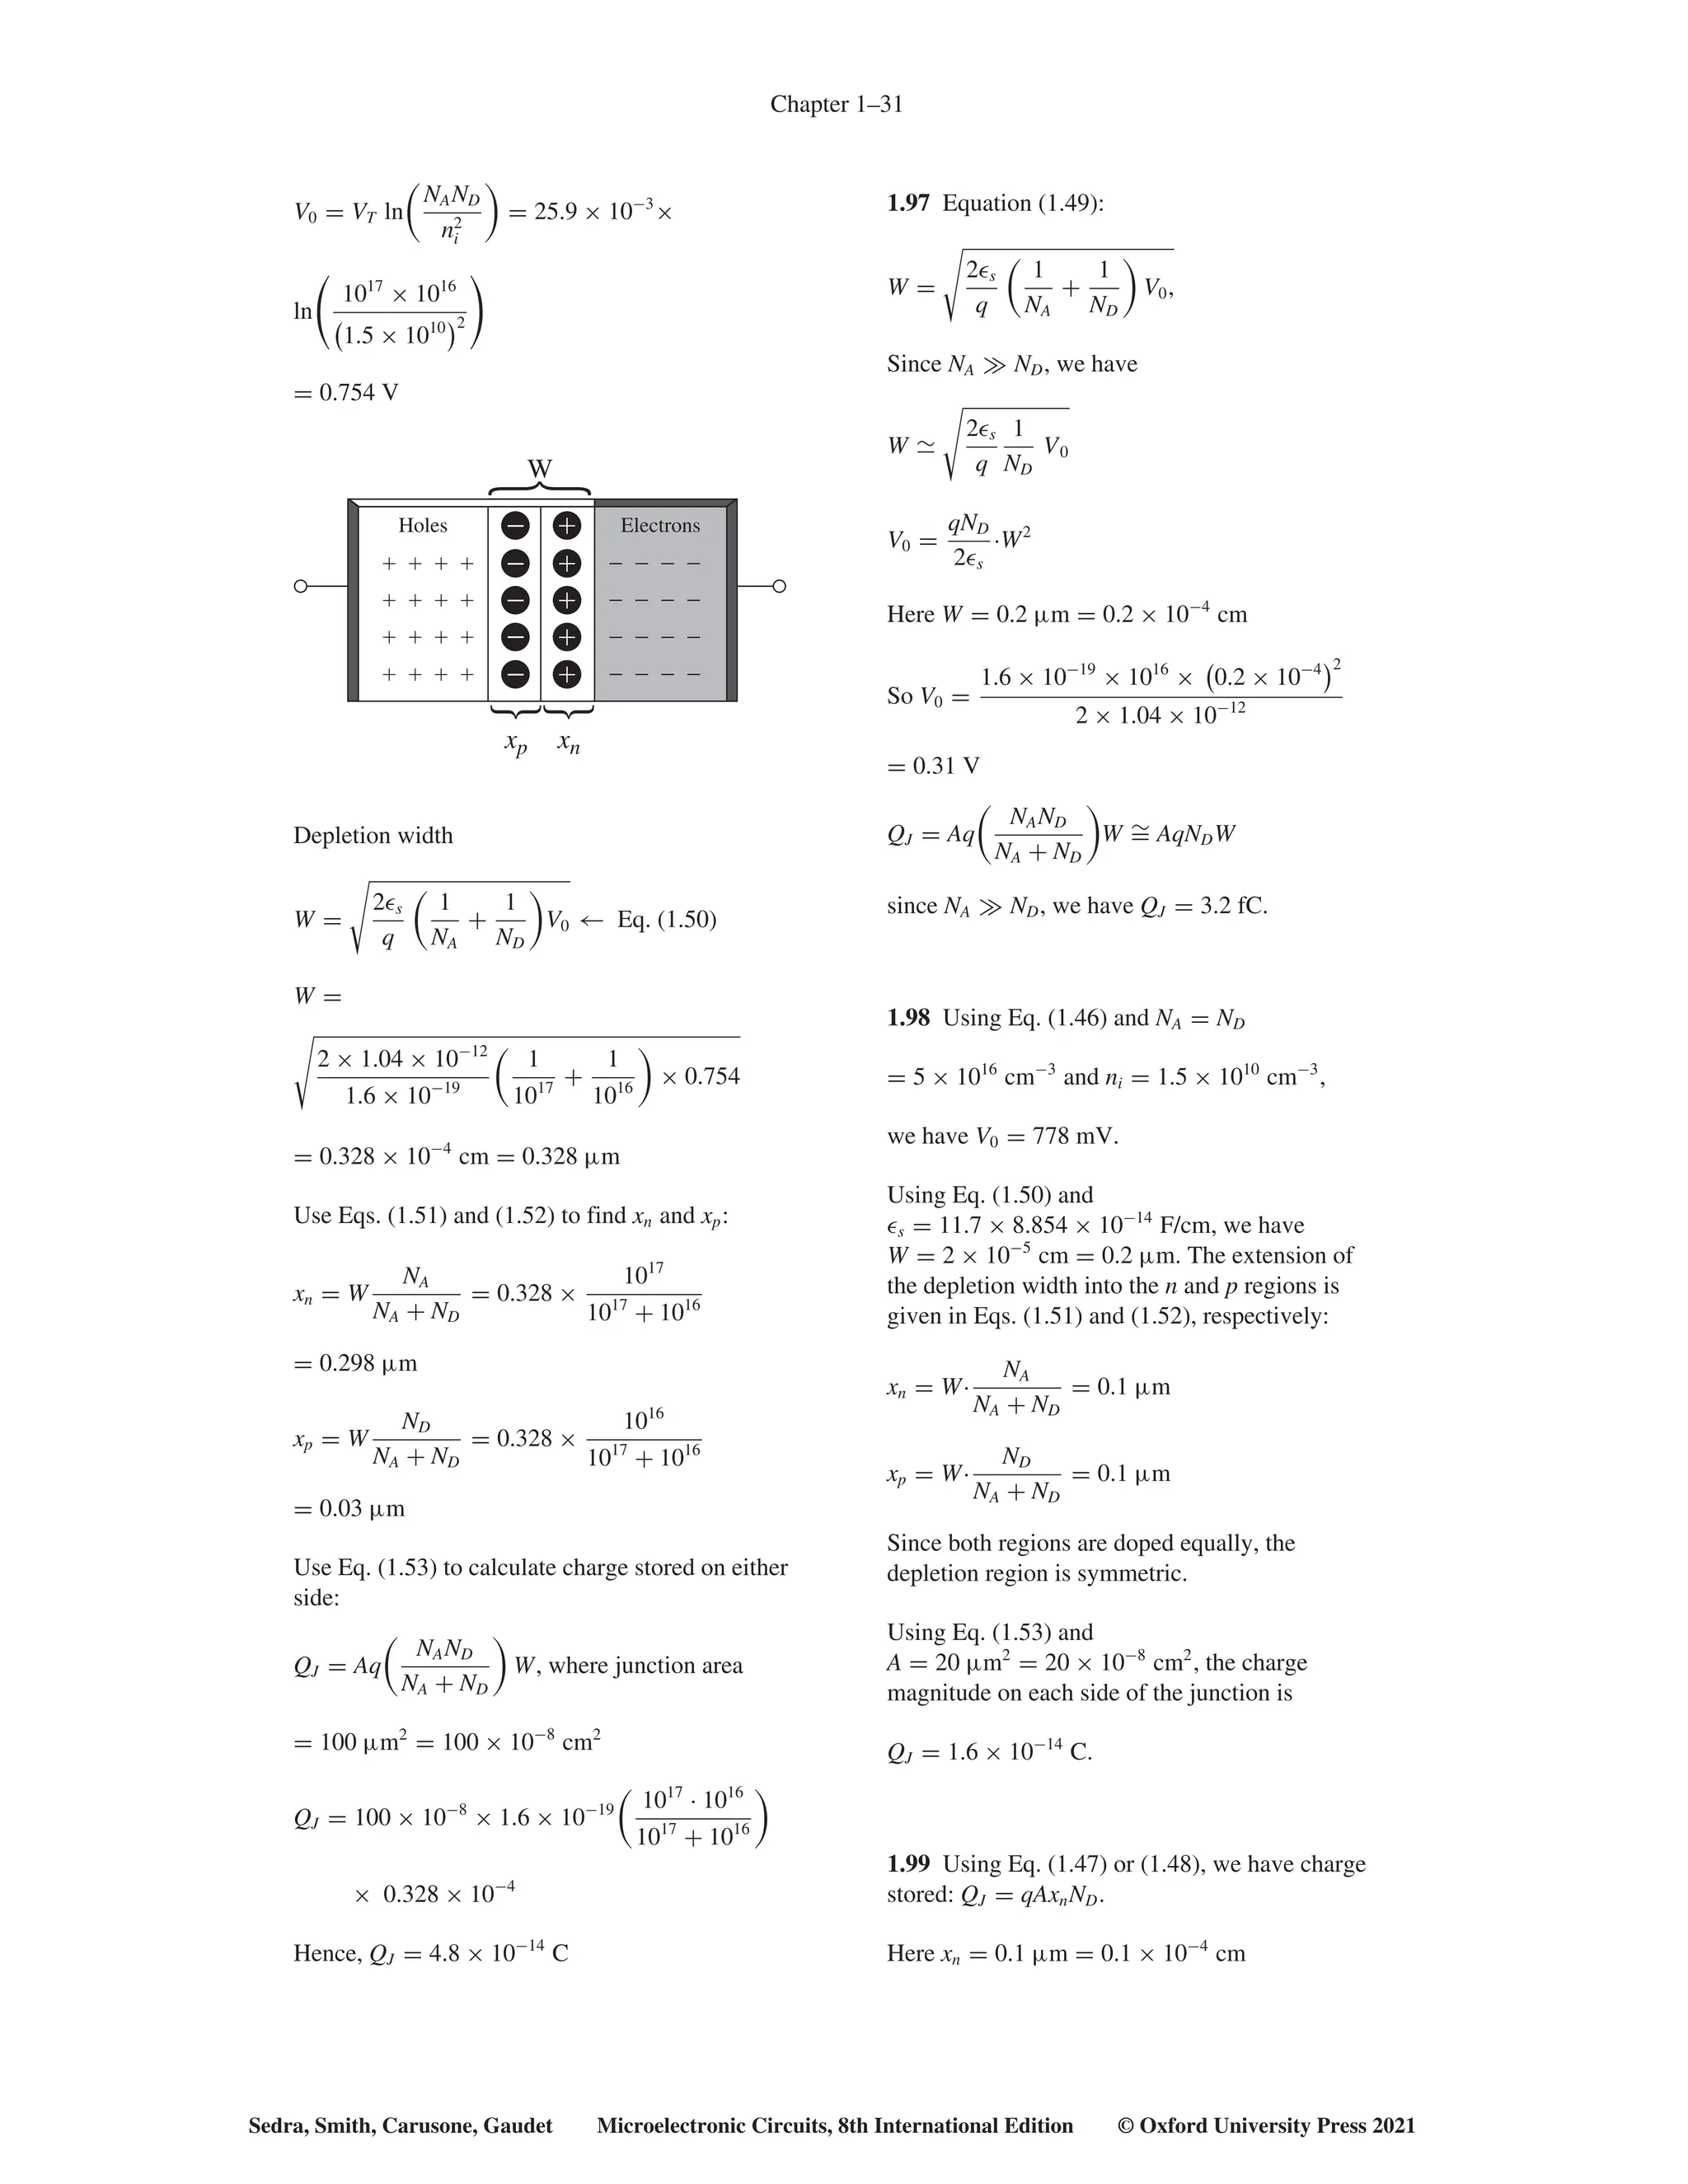 Chapter 1–31
V₀ = V_T ln(N_A N_D / n_i²) = 25.9 × 10⁻³ ×
ln(10¹⁷ × 10¹⁶ / (1.5 × 10¹⁰)²)
= 0.754 V
W
Holes Electrons
+ + + + − + − − − −
+ + + + − + − − − −
+ + + + − + − − − −
+ + + + − + − − − −
− +
x_p x_n
Depletion width
W = √(2ϵ_s / q (1 / N_A + 1 / N_D) V₀) ← Eq. (1.50)
W =
√(2 × 1.04 × 10⁻¹² / 1.6 × 10⁻¹⁹ (1 / 10¹⁷ + 1 / 10¹⁶) × 0.754)
= 0.328 × 10⁻⁴ cm = 0.328 μm
Use Eqs. (1.51) and (1.52) to find x_n and x_p:
x_n = W N_A / (N_A + N_D) = 0.328 × 10¹⁷ / (10¹⁷ + 10¹⁶)
= 0.298 μm
x_p = W N_D / (N_A + N_D) = 0.328 × 10¹⁶ / (10¹⁷ + 10¹⁶)
= 0.03 μm
Use Eq. (1.53) to calculate charge stored on either
side:
Q_J = Aq(N_A N_D / (N_A + N_D)) W, where junction area
= 100 μm² = 100 × 10⁻⁸ cm²
Q_J = 100 × 10⁻⁸ × 1.6 × 10⁻¹⁹(10¹⁷ · 10¹⁶ / (10¹⁷ + 10¹⁶))
× 0.328 × 10⁻⁴
Hence, Q_J = 4.8 × 10⁻¹⁴ C
1.97 Equation (1.49):
W = √(2ϵ_s / q (1 / N_A + 1 / N_D) V₀),
Since N_A ≫ N_D, we have
W ≃ √(2ϵ_s / q 1 / N_D V₀)
V₀ = qN_D / 2ϵ_s · W²
Here W = 0.2 μm = 0.2 × 10⁻⁴ cm
So V₀ = 1.6 × 10⁻¹⁹ × 10¹⁶ × (0.2 × 10⁻⁴)² / 2 × 1.04 × 10⁻¹²
= 0.31 V
Q_J = Aq(N_A N_D / (N_A + N_D))W ≅ AqN_D W
since N_A ≫ N_D, we have Q_J = 3.2 fC.
1.98 Using Eq. (1.46) and N_A = N_D
= 5 × 10¹⁶ cm⁻³ and n_i = 1.5 × 10¹⁰ cm⁻³,
we have V₀ = 778 mV.
Using Eq. (1.50) and
ϵ_s = 11.7 × 8.854 × 10⁻¹⁴ F/cm, we have
W = 2 × 10⁻⁵ cm = 0.2 μm. The extension of
the depletion width into the n and p regions is
given in Eqs. (1.51) and (1.52), respectively:
x_n = W · N_A / (N_A + N_D) = 0.1 μm
x_p = W · N_D / (N_A + N_D) = 0.1 μm
Since both regions are doped equally, the
depletion region is symmetric.
Using Eq. (1.53) and
A = 20 μm² = 20 × 10⁻⁸ cm², the charge
magnitude on each side of the junction is
Q_J = 1.6 × 10⁻¹⁴ C.
1.99 Using Eq. (1.47) or (1.48), we have charge
stored: Q_J = qAx_n N_D.
Here x_n = 0.1 μm = 0.1 × 10⁻⁴ cm
Sedra, Smith, Carusone, Gaudet Microelectronic Circuits, 8th International Edition © Oxford University Press 2021